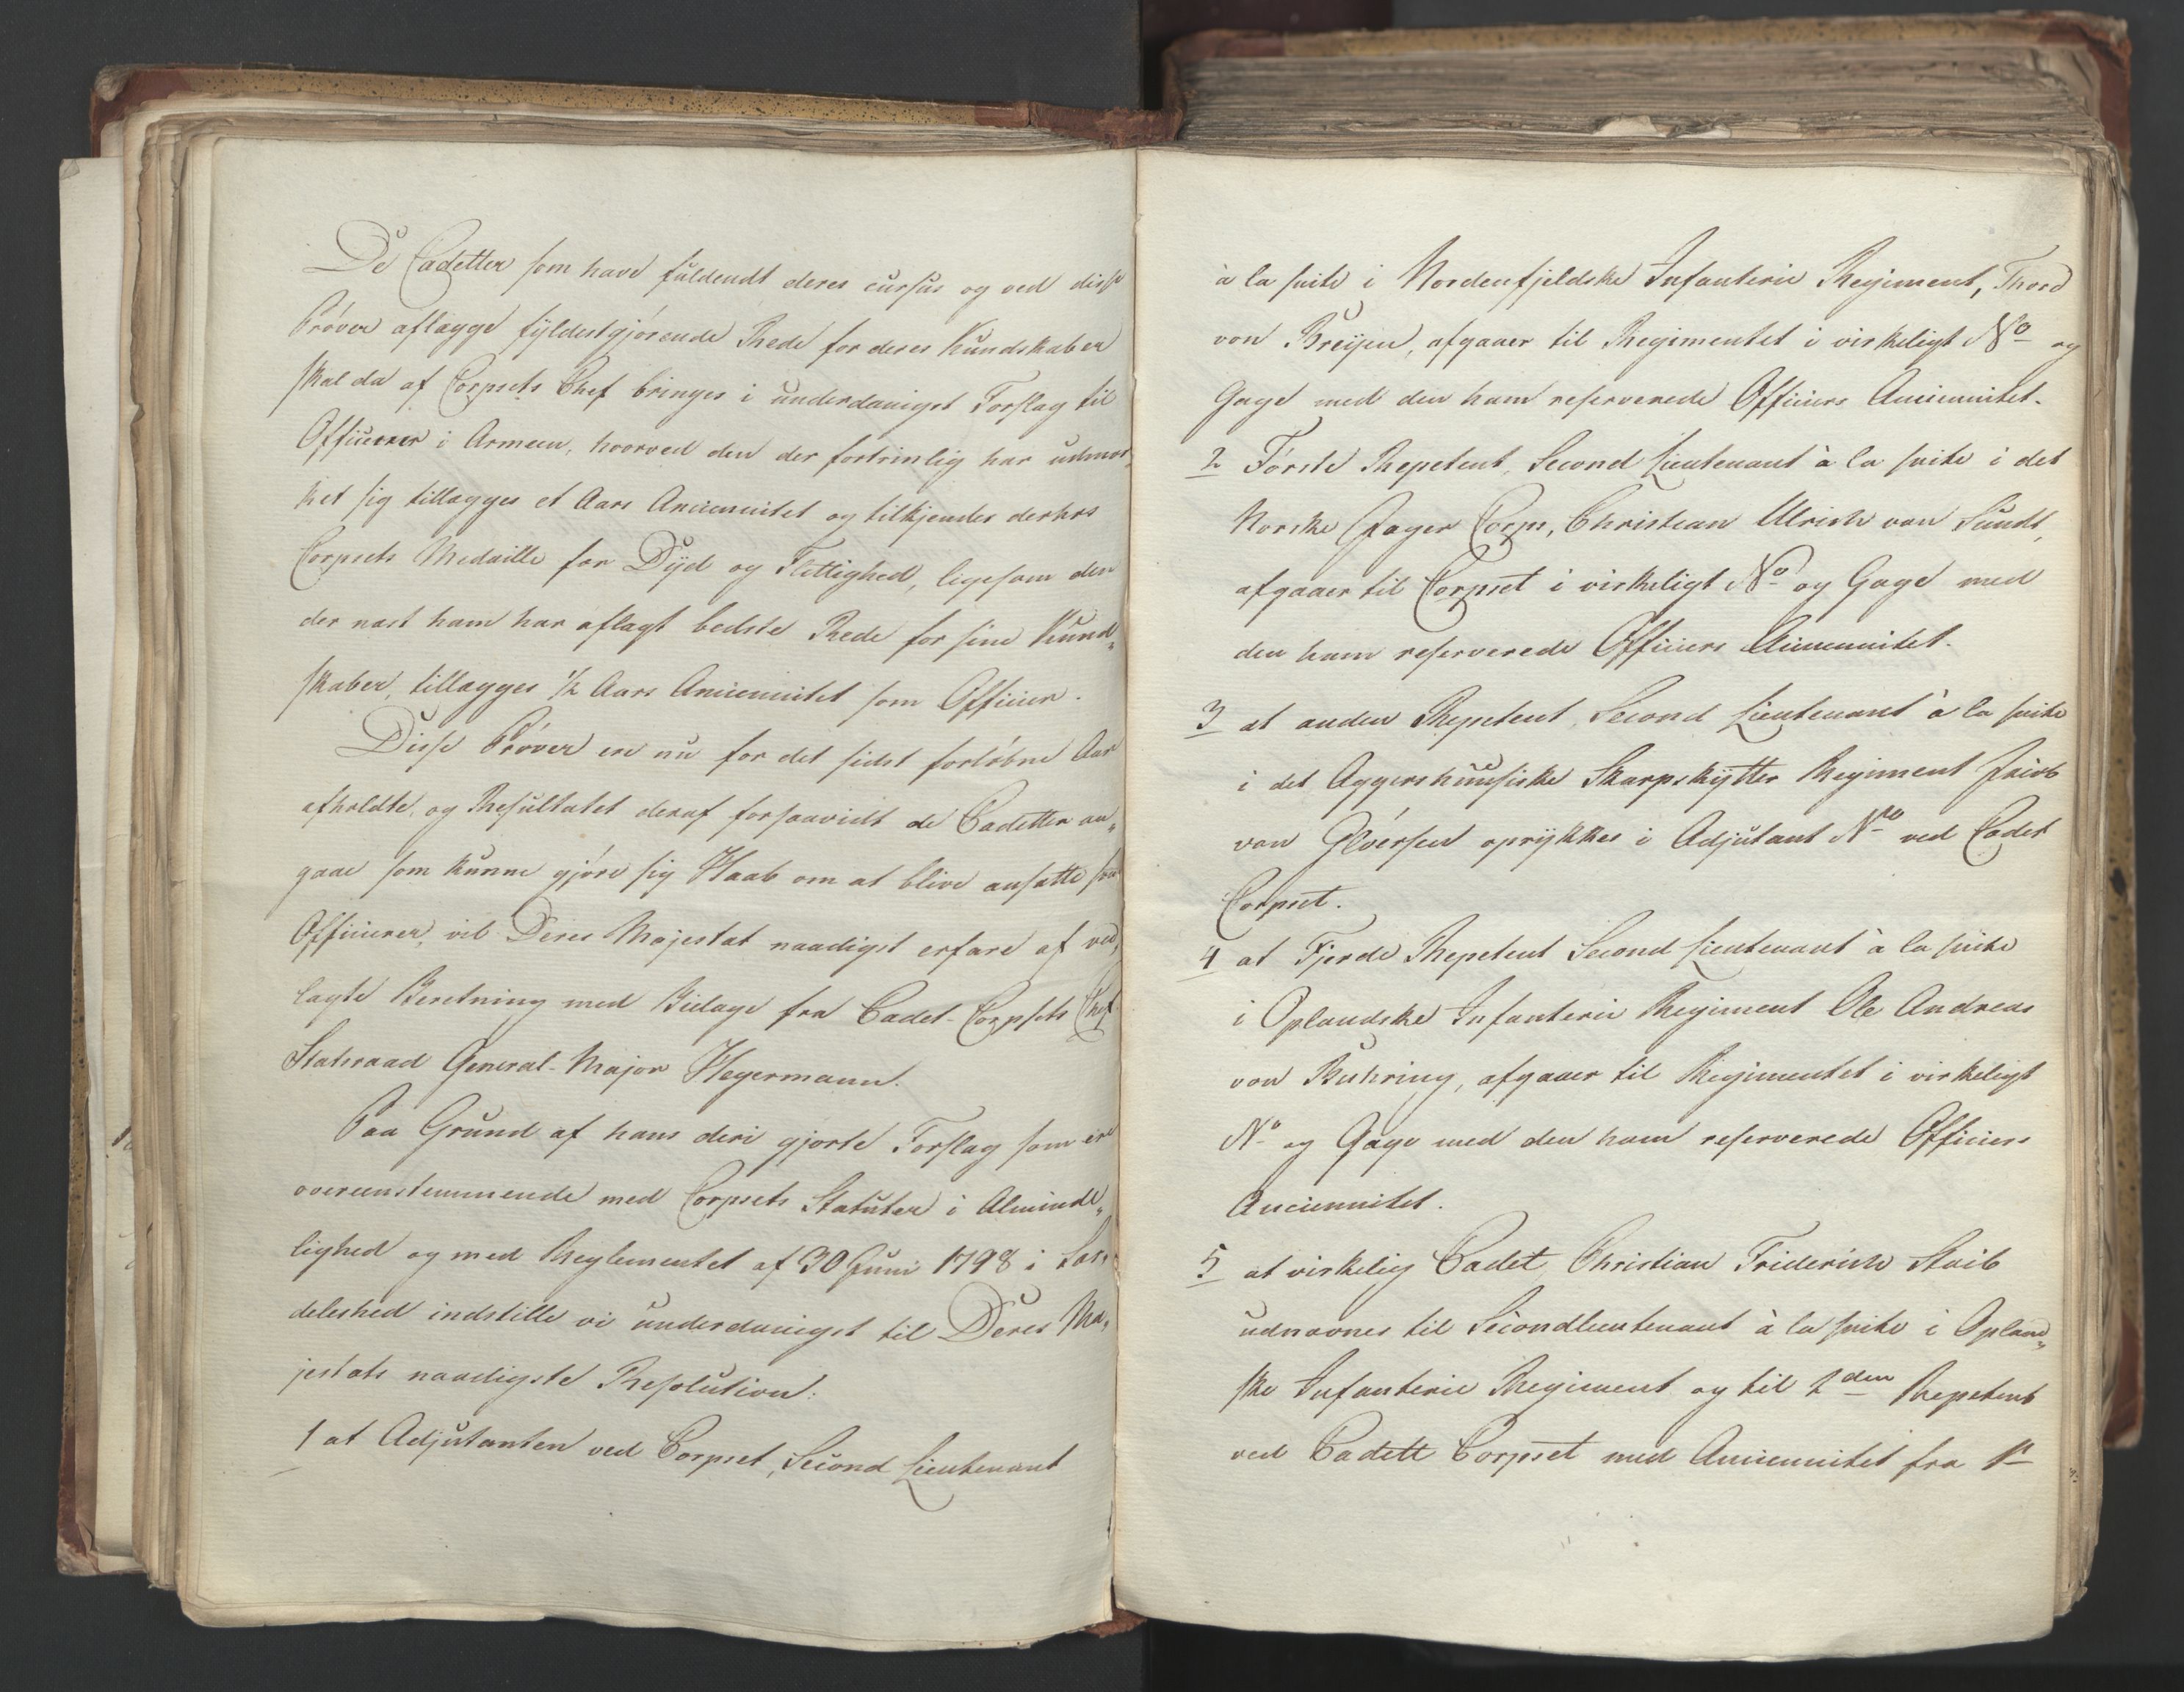 De Cadetter som have fuldendt deres cursus og ved disse
Prøver aflægge fyldestgjørende Rede for deres Kundskaber
skal da af Corpsets Chef bringes i underdanigst Forslag til
Officerer i Armeen, hvorved den der fortrinlig har udmær„
ket sig tillægges et Aars Anciennitet og tilkjendes derhos
Corpsets Medaille for Dyd og Flittighed, ligesom den
der næst ham har aflagt bedste Rede for sine Kund„
skaber, tillægges ½ Aars Anciennitet som Officier.
Disse Prøver ere nu for det sidst forløbne Aar
afholdte, og Resultatet deraf forsaavidt de Cadetter an„
gaae som kunne gjøre sig Haab om at blive ansatte som
Officierer, vil Deres Majestæt naadigst erfare af ved„
lagte Beretning med Bielage fra Cadet-Corpsets Chef
Statsraad General-Major Hegermann.
Paa Grund af hans deri gjorte Forslag som ere
overeensstemmende med Corpsets Statuter i Alminde„
lighed og med Reglementet af 30 Juni 1798 i Sær„
deleshed indstille vi underdanigst til Deres Ma„
jestæts naadigste Resolution:
1 at Adjutanten ved Corpset, Second Lieutenant
à la suite i Nordenfjeldske Infanterie Regiment, Thord
von Breijen, afgaaer til Regimentet i virkeligt No og
Gage med den ham reserverede Officiers Anciennitet.
2 Første Repetent, Second Lieutenant à la suite i det
Norske Jæger Corps, Christian Ulrich von Sundt,
afgaaer til Corpset i virkeligt No og Gage med
den ham reserverede Officiers Anciennitet.
3 at anden Repetent, Second Lieutenant à la suite
i det Aggershuusiske Skarpskytter Regiment Jacob
von Gløersen oprykkes i Adjutant Nro ved Cadet
Corpset.
4 at Fjerde Repetent Second Lieutenant à la suite
i Oplandske Infanterie Regiment Ole Andreas
von Buhring, afgaaer til Regimentet i virkeligt
No og Gage med den ham reserverede Officiers
Anciennitet.
5 at virkelig Cadet, Christian Friderich Staib
udnævnes til Secondlieutenant à la suite i Opland„
ske Infanterie Regiment og til 2den Repetent
ved Cadett Corpset med Anciennitet fra 1ste